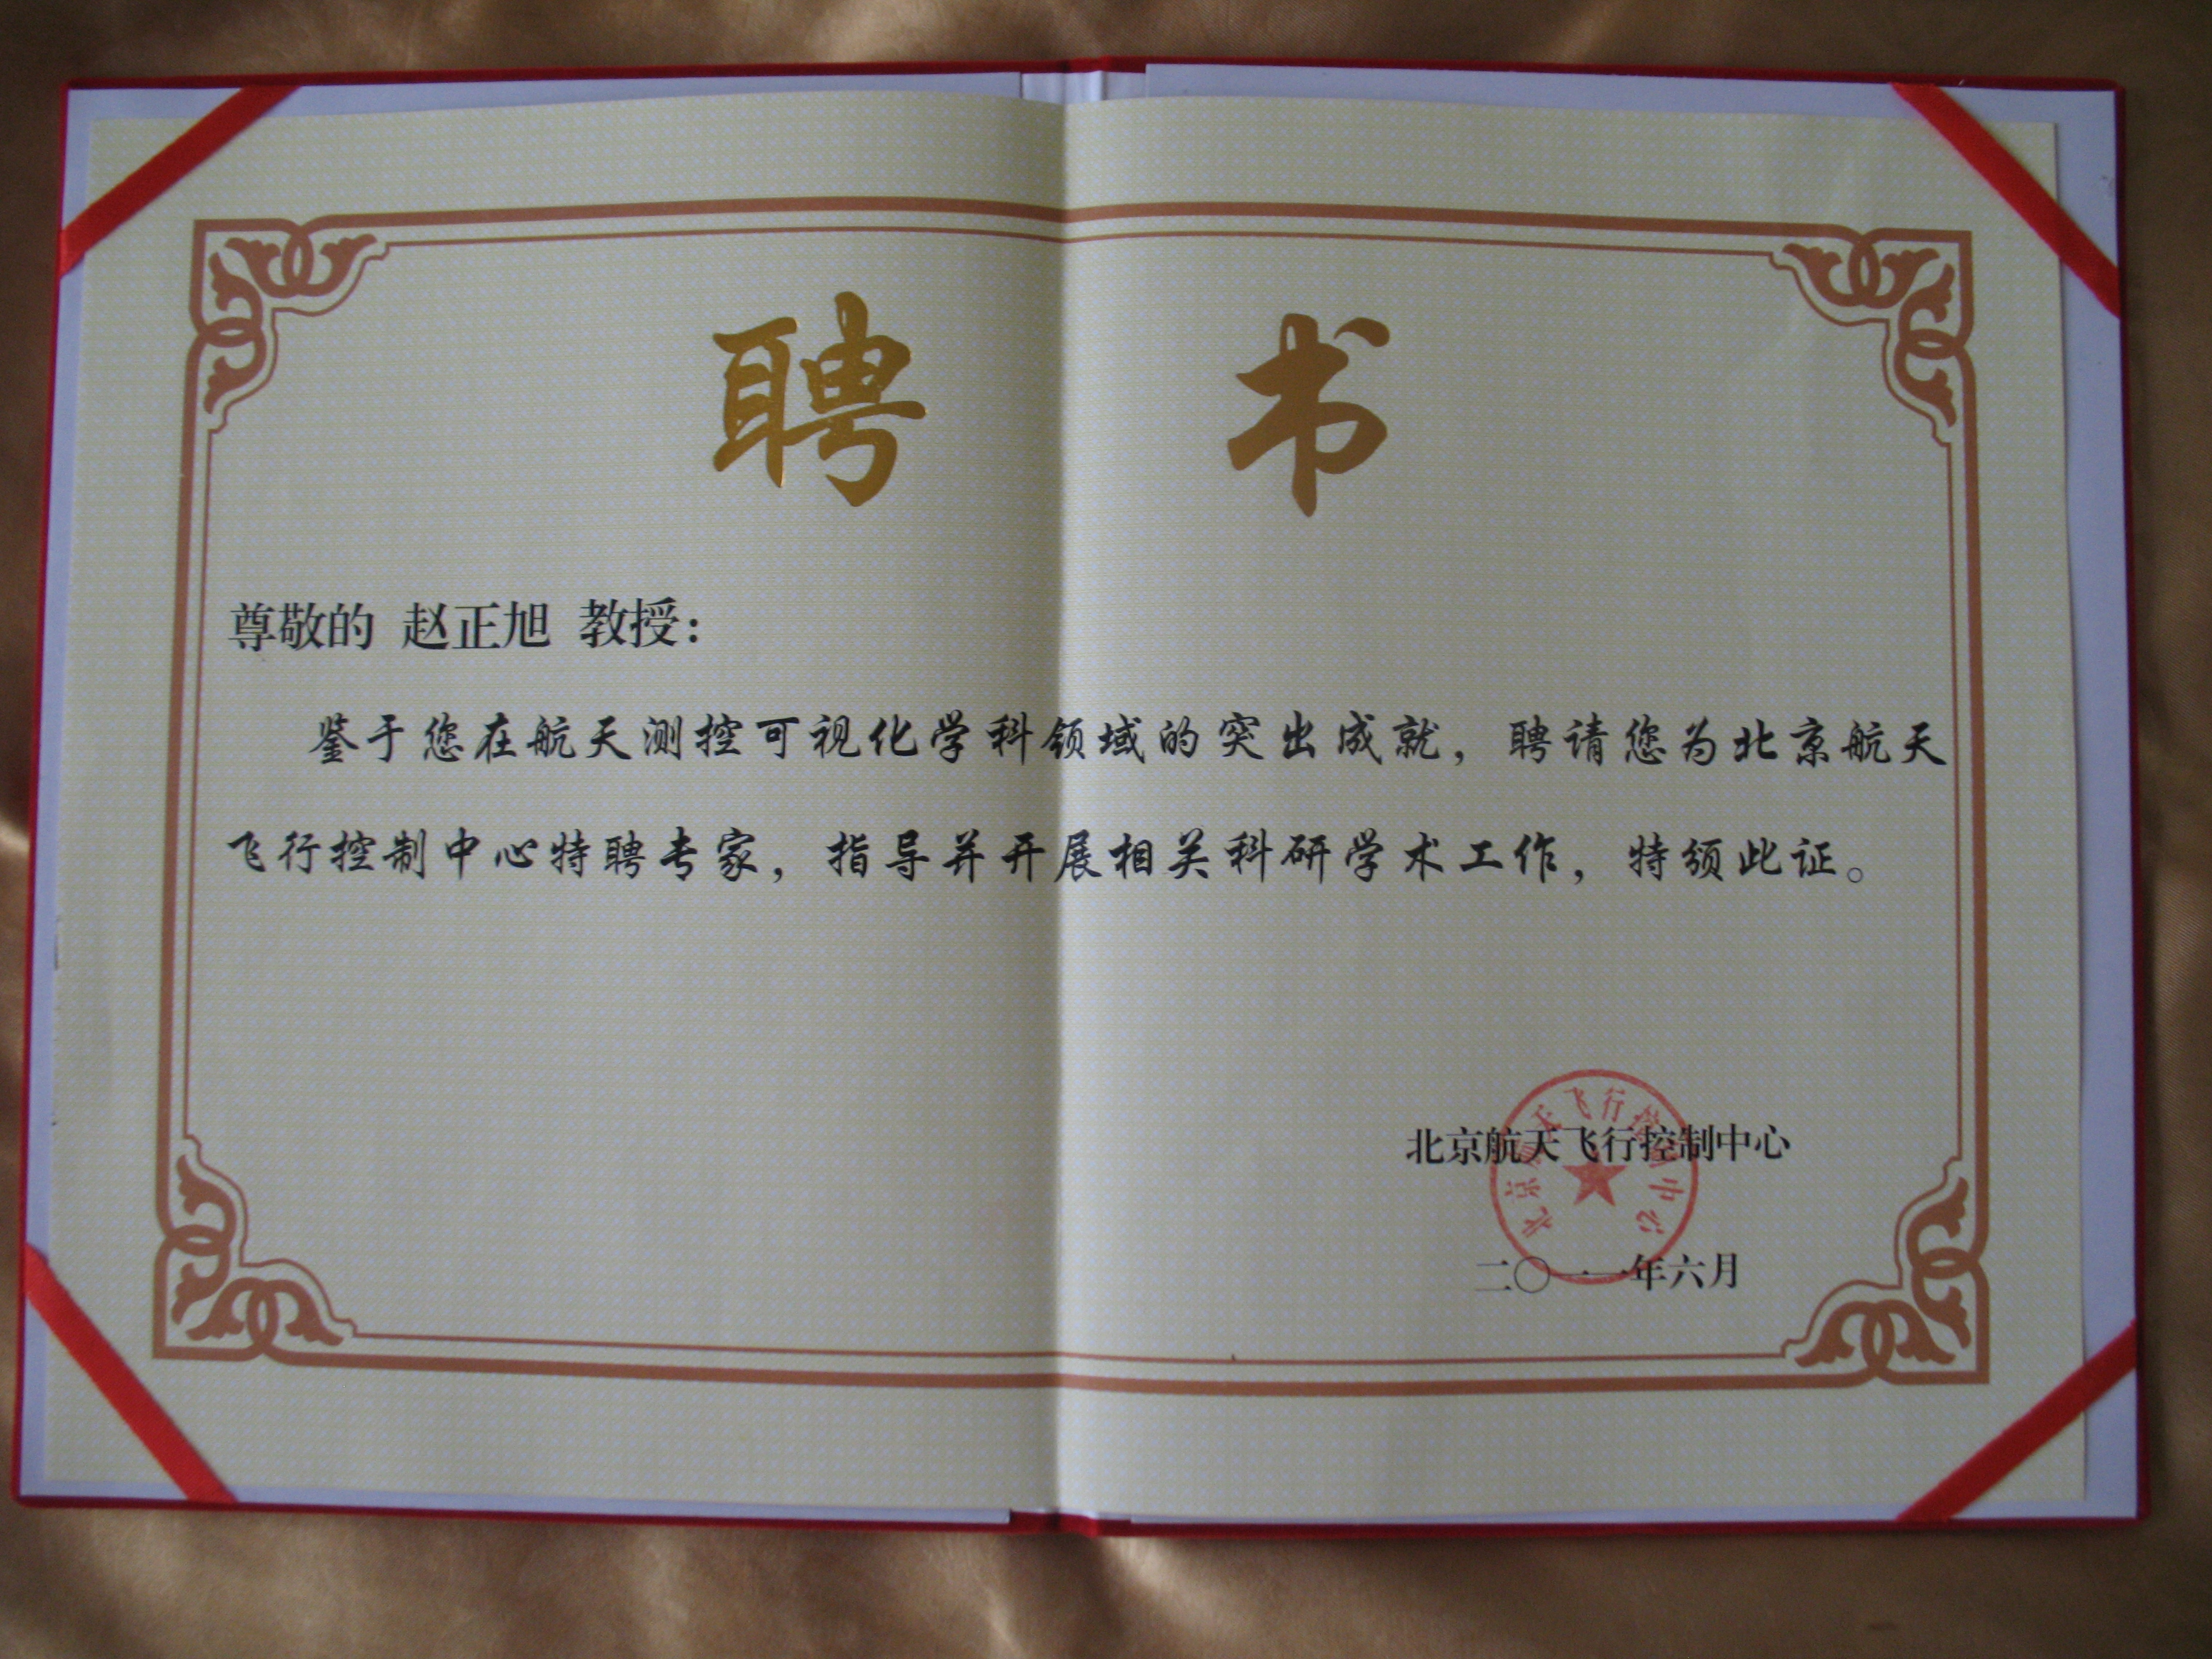 聘书
尊敬的 赵正旭 教授：
鉴于您在航天测控可视化学科领域的突出成就，聘请您为北京航天
飞行控制中心特聘专家，指导并开展相关科研学术工作，特颁此证。
北京航天飞行控制中心
北京航天飞行控制中心
二〇一一年六月